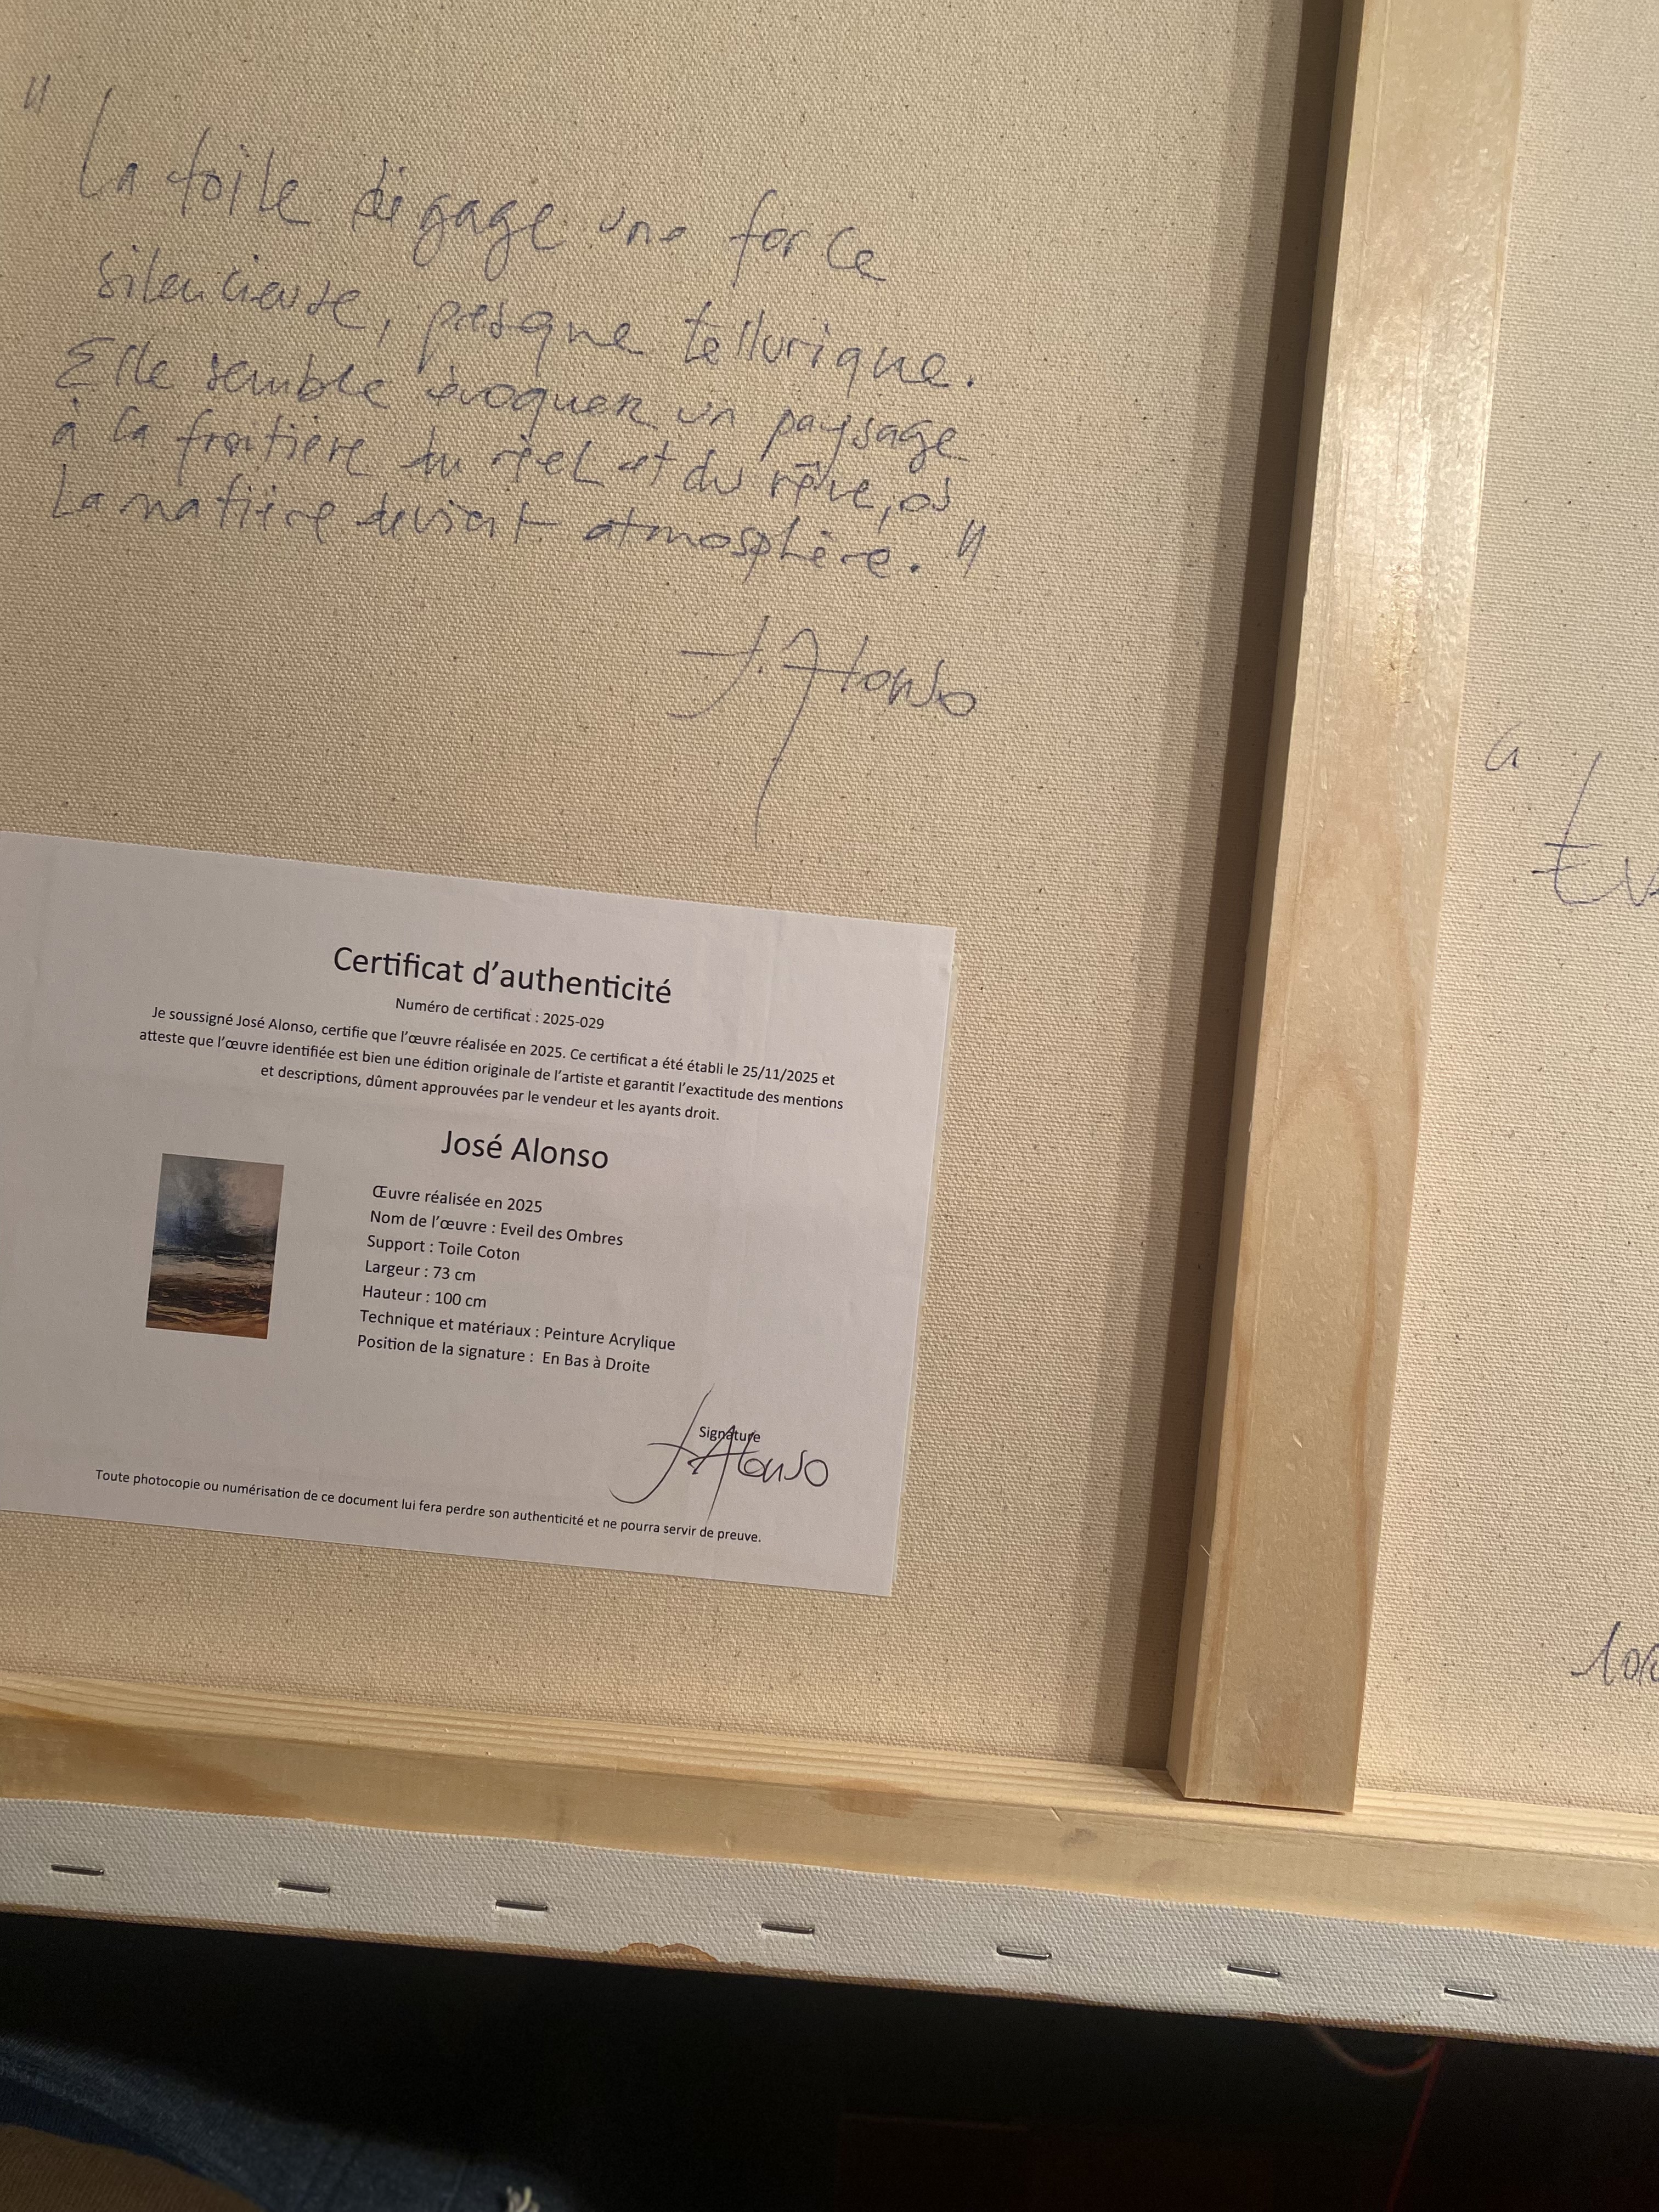 "La toile dégage une force
silencieuse, presque tellurique.
Elle semble évoquer un paysage
à la frontière du réel et du rêve, où
la matière devient atmosphère."
J. Alonso
Certificat d'authenticité
Numéro de certificat : 2025-029
Je soussigné José Alonso, certifie que l'œuvre réalisée en 2025. Ce certificat a été établi le 25/11/2025 et
atteste que l'œuvre identifiée est bien une édition originale de l'artiste et garantit l'exactitude des mentions
et descriptions, dûment approuvées par le vendeur et les ayants droit.
José Alonso
Œuvre réalisée en 2025
Nom de l'œuvre : Eveil des Ombres
Support : Toile Coton
Largeur : 73 cm
Hauteur : 100 cm
Technique et matériaux : Peinture Acrylique
Position de la signature : En Bas à Droite
Signature
J. Alonso
Toute photocopie ou numérisation de ce document lui fera perdre son authenticité et ne pourra servir de preuve.